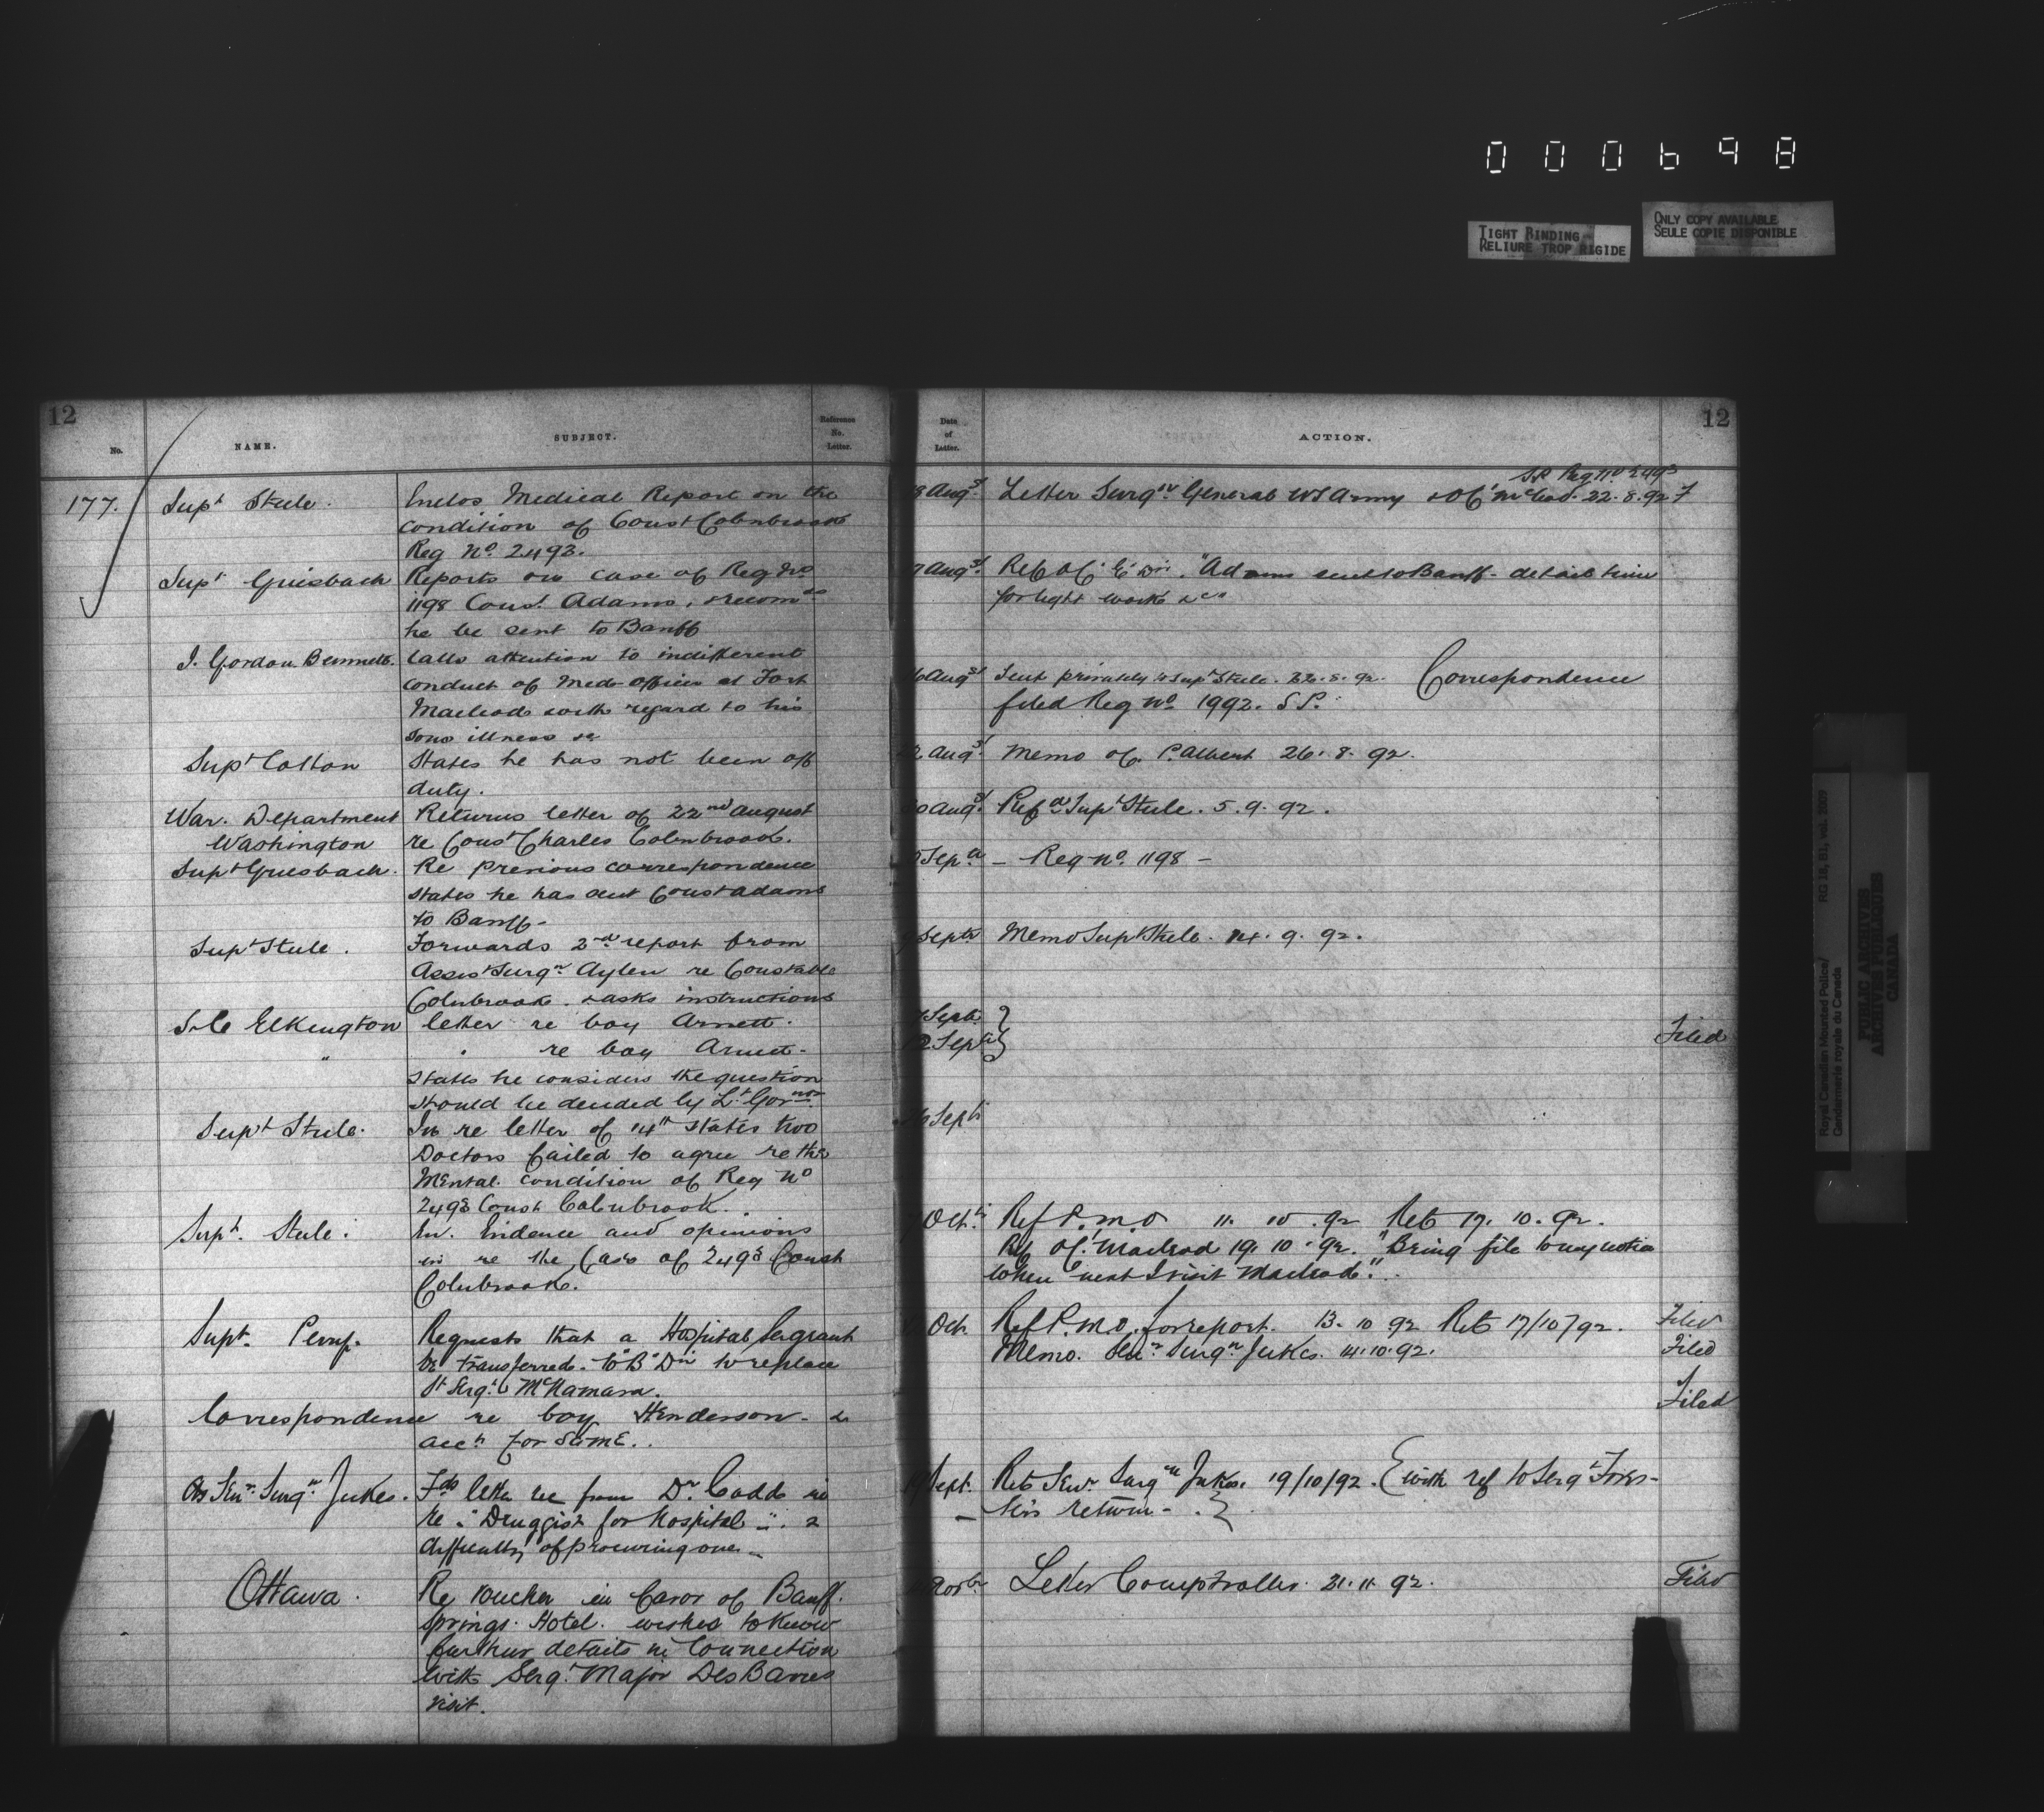 000698
TIGHT BINDING
RELIURE TROP RIGIDE
ONLY COPY AVAILABLE
SEULE COPIE DISPONIBLE
12
No.
NAME.
SUBJECT.
Reference
No.
Letter.
177.
Supt Steele.
Enclos Medical Report on the
condition of Const Colnbrook
Reg No 2493.
Supt Griesbach
Reports on case of Reg No
1198 Const. Adams, & recomds
he be sent to Banff
J. Gordon Bennett.
Calls attention to indifferent
conduct of Med officer at Fort
Macleod with regard to his
sons illness &c
Supt Cotton
States he has not been off
duty.
War. Department
Washington
Returns letter of 22nd August
re Const Charles Colnbrook.
Supt Griesbach.
Re previous correspondence
states he has sent Const Adams
to Banff-
Supt Steele.
Forwards 2nd report from
Assist Surgn Aylen re Constable
Colnbrook. & asks instructions
Elkington
letter re boy Arnett.
" . re boy Arnett-
States he considers the question
should be decided by Lt. Govnor.
Supt Steele.
In re letter of 14th states two
Doctors failed to agree re the
Mental condition of Reg No
2493 Const Colnbrook.
Supt. Steele.
Evidence and opinions
in re the Case of 2493 Const
Colnbrook.
Supt. Perry.
Requests that a Hospital Sergeant
be transferred to "B" Divn to replace
St Sergt McNamara.
Correspondence re boy Henderson- &
acct for same..
Sen. Surgn Jukes.
Fds letter rec from Dr. Codd in
re "Druggist for Hospital" &
difficulty of procuring one-
Ottawa.
Re voucher in favor of Banff.
Springs Hotel. wishes to know
further details in connection
with Sergt Major Des Barres
visit.
12
Date
of
Letter.
ACTION.
Augst
S.P. Reg No 2493
Letter Surgn General US Army & O.C. McLeod. 22.8.92
Augst.
Ref O.C. "G" Divn. "Adams sent to Banff- detail him
for light work &c"
Augst
Sent privately to Supt Steele. 22.8.92. Correspondence
filed Reg No 1992. S.P.
Augst.
Memo O.C. P. Albert 26.8.92.
Augst.
Refd Supt Steele. 5.9.92.
Sept
- Reg No. 1198 -
Septr
Memo Supt Steele. 14.9.92.
Septr
Septr
Filed
Septr
Oct.
Ref P.M.O 11.10.92 Ret 17.10.92.
Ref O.C. Macleod 19.10.92. "Bring file to my notice
when next I visit Macleod".
Oct.
Ref P.M.O. for report. 13.10 92 Ret 17/10/92.
Filed
Memo. Senr Surgn Jukes. 14.10.92.
Filed
Filed
Sept.
Ret Senr Surgn Jukes. 19/10/92. { with ref to Sergt
his return- . }
Novbr
Letter Comptroller. 21.11.92.
Filed
Royal Canadian Mounted Police/
Gendarmerie royale du Canada
RG 18, B1, vol. 2009
PUBLIC ARCHIVES
ARCHIVES PUBLIQUES
CANADA